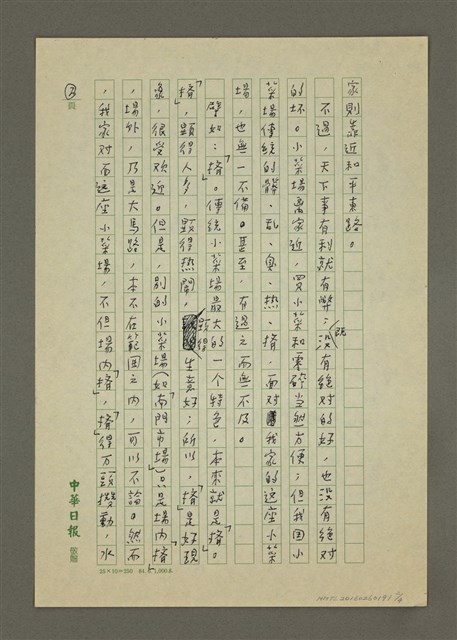 家則靠近和平東路。
不過，天下事有利就有弊；既沒有絕對的好，也沒有絕對
的坏。小菜場离家近，買小菜和零碎当然方便；但我国小
菜場傳統的髒、乱、臭、热、擠，面对我家的这座小菜
場，也無一不備。甚至，有过之而無不及。
譬如：「擠」。傳統小菜場最大的一个特色，本來就是「擠」。
「擠」，顕得人多，顕得热闹，顕得生意好；所以，「擠」是好現
象，很受欢迎。但是，別的小菜場（如南門市場）只是場内「擠」
，場外，乃是大馬路，本不在範囲之内，可以不論。然而
，我家对面这座小菜場，不但場内「擠」，「擠」得万頭攢動，水
3
頁
中華日報
稿紙
25×10=250
NMTL20160260191